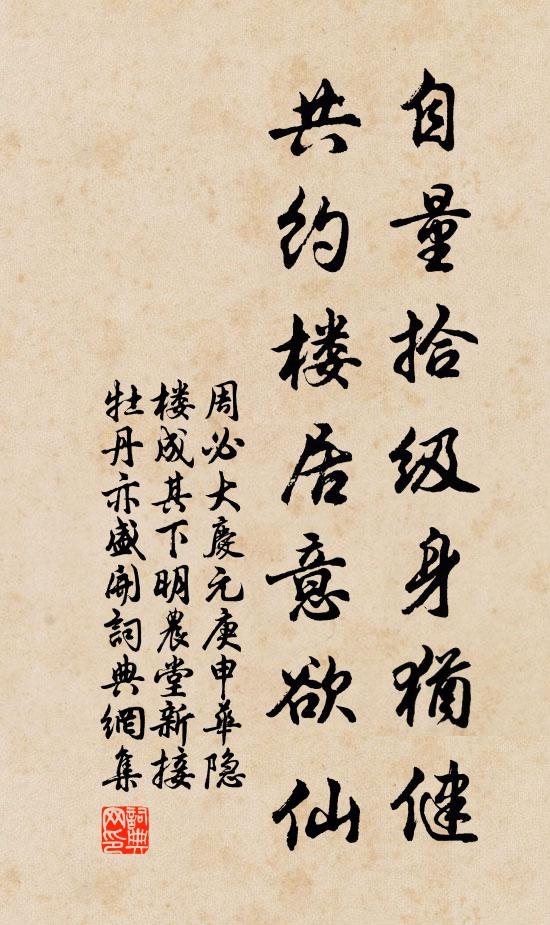 自量拾级身犹健
共约楼居意欲仙
周必大慶元庚申華隐
楼成其下明農堂新接
牡丹亦盛開詞典網集
詞典
网印